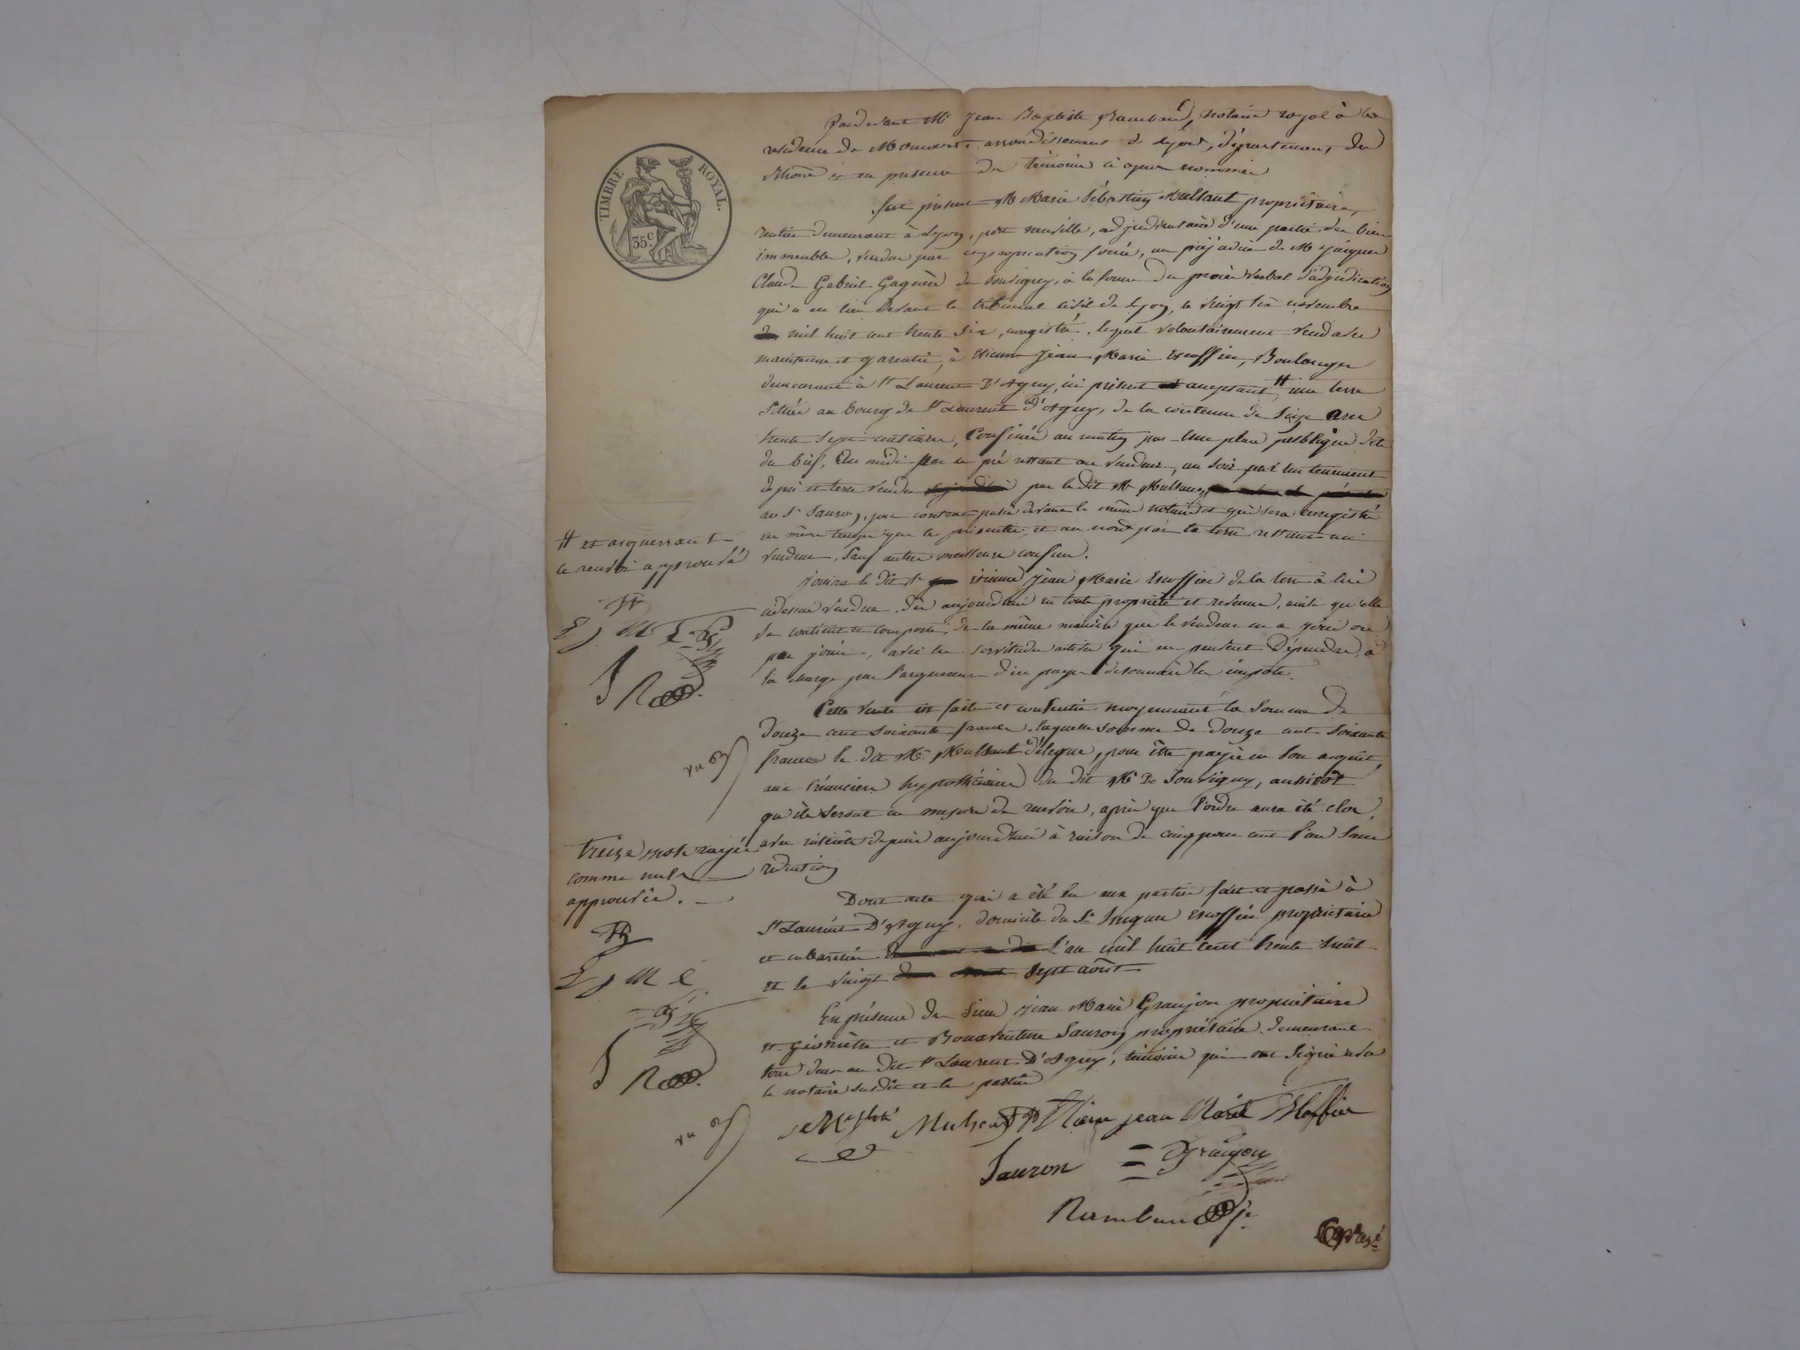 TIMBRE ROYAL.
35.c
Pardevant Me Jean Baptiste Rambaud, notaire royal à la
résidence de Mornant, arrondissement de Lyon, département du
Rhône et en présence des témoins ci après nommés
fut présent Mr Marie Sébastien Mulsant propriétaire,
rentier demeurant à Lyon, adjudicataire d'une partie des biens
immeubles, vendus par expropriation forcée, au préjudice de Mr Jacques
Claude Gabriel Gagnière de Souvigny, à la forme du procès verbal d'adjudication
qui a eu lieu devant le tribunal civil de Lyon, le vingt six novembre
mil huit cent trente six, enregistré, lequel volontairement vend avec
maintenue et garantie, à Etienne Jean Marie Escoffier, Boulanger
demeurant à St Laurent D'Agny, ici présent acceptant # une terre
située au bourg de St Laurent D'Agny, de la contenue de seize ares
trente sept centiares, confinée au matin par une place publique dite
du bief, au midi par un pré restant au vendeur, au soir par un tenement
de pré et terre vendu par le dit Mr Mulsant
au Sr Sauron, par contrat passé devant le même notaire et qui sera enregistré
en même temps que le présent, et au nord par la terre restant au
vendeur, sauf autres meilleurs confins.
# et acquerrant
ce renvoi approuvé
jouira le dit Sr Etienne Jean Marie Escoffier de la terre à lui
cidessus vendue, dès aujourd'hui en toute propriété et revenus, ainsi qu'elle
se contient et comporte, de la même manière que le vendeur en a joui ou
pu jouir, avec les servitudes actives qui en peuvent dépendre, à
la charge par l'acquéreur d'en payer désormais les impôts.
E J M E
J R
Cette vente est faite et consentie moyennant la somme de
douze cent soixante francs, laquelle somme de douze cent soixante
francs le dit Mr Mulsant délègue, pour être payée en son acquit,
aux créanciers hypothécaires du dit Mr De Souvigny, aussitôt
qu'ils seront en mesure de recevoir, après que l'ordre aura été clos,
avec intérêts depuis aujourd'hui à raison de cinq pour cent l'an sans
réduction
vu
treize mots rayés
comme nuls
approuvée.
Dont acte qui a été lu aux parties fait et passé à
St Laurent D'Agny, domicile du Sr Jacques Escoffier propriétaire
et cabaretier l'an mil huit cent trente huit
et le vingt sept août
E J M E
J R
En présence des Sieurs Jean Marie Granjon propriétaire
et géomètre et Bonaventure Sauron propriétaire demeurant
tous deux au dit St Laurent D'Agny, témoins qui ont signé avec
le notaire susdit et les parties
vu
Mulsant Etienne jean Marie Escoffier
Sauron = Granjon
Rambaud